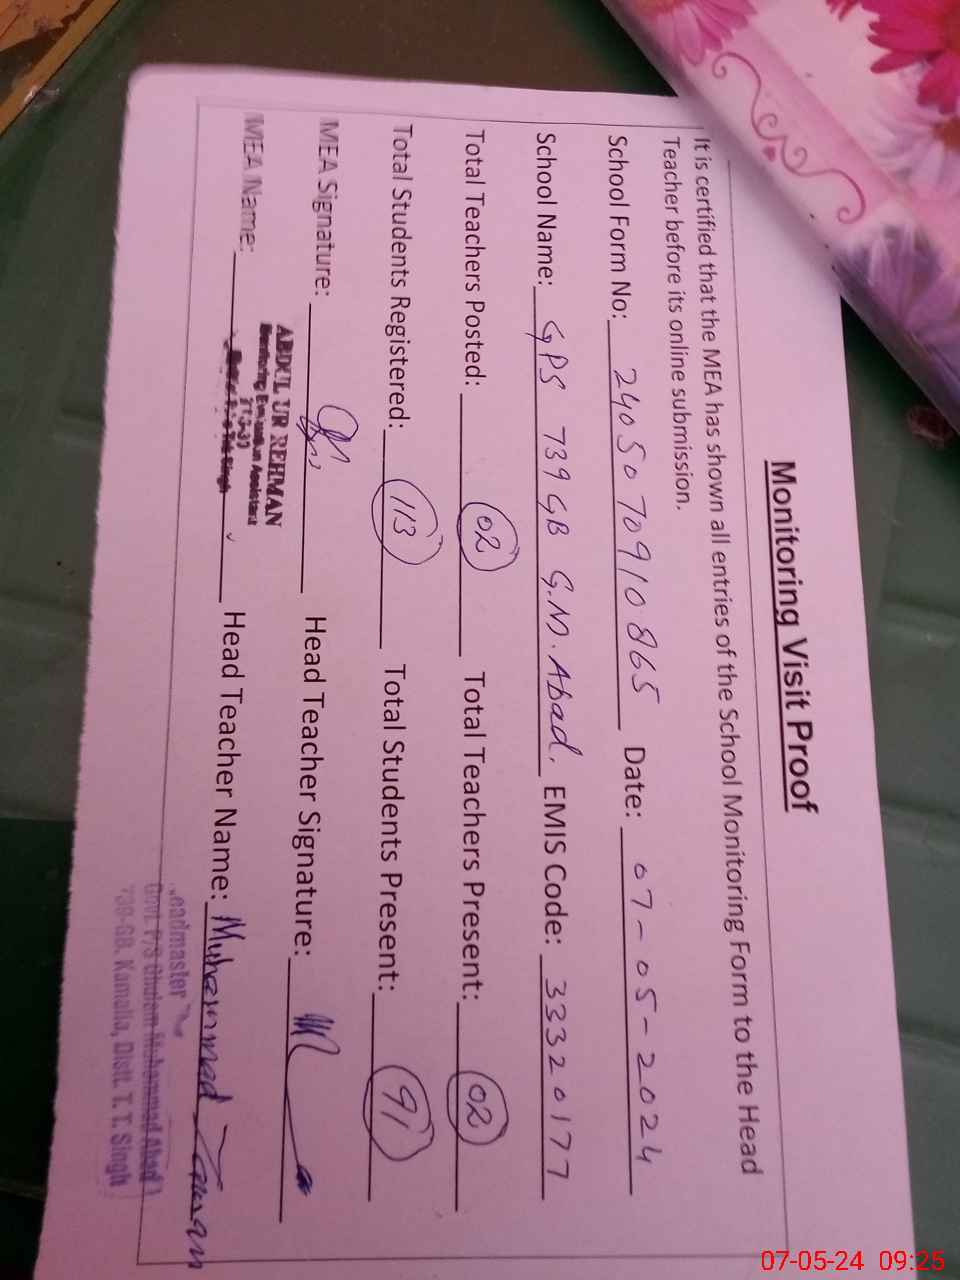 Monitoring Visit Proof
It is certified that the MEA has shown all entries of the School Monitoring Form to the Head
Teacher before its online submission.
School Form No: 2405070910865 Date: 07-05-2024
School Name: GPS 739 GB G.M.Abad. EMIS Code: 33320177
Total Teachers Posted: 02 Total Teachers Present: 02
Total Students Registered: 113 Total Students Present: 91
MEA Signature: Head Teacher Signature:
ABDUL UR REHMAN
Monitoring Evaluation Assistant
MEA Name: Head Teacher Name: Muhammad
eadmaster
Govt. P/S Ghulam Muhammad Abad
739-GB. Kamalia, Distt. T. T. Singh
07-05-24 09:25